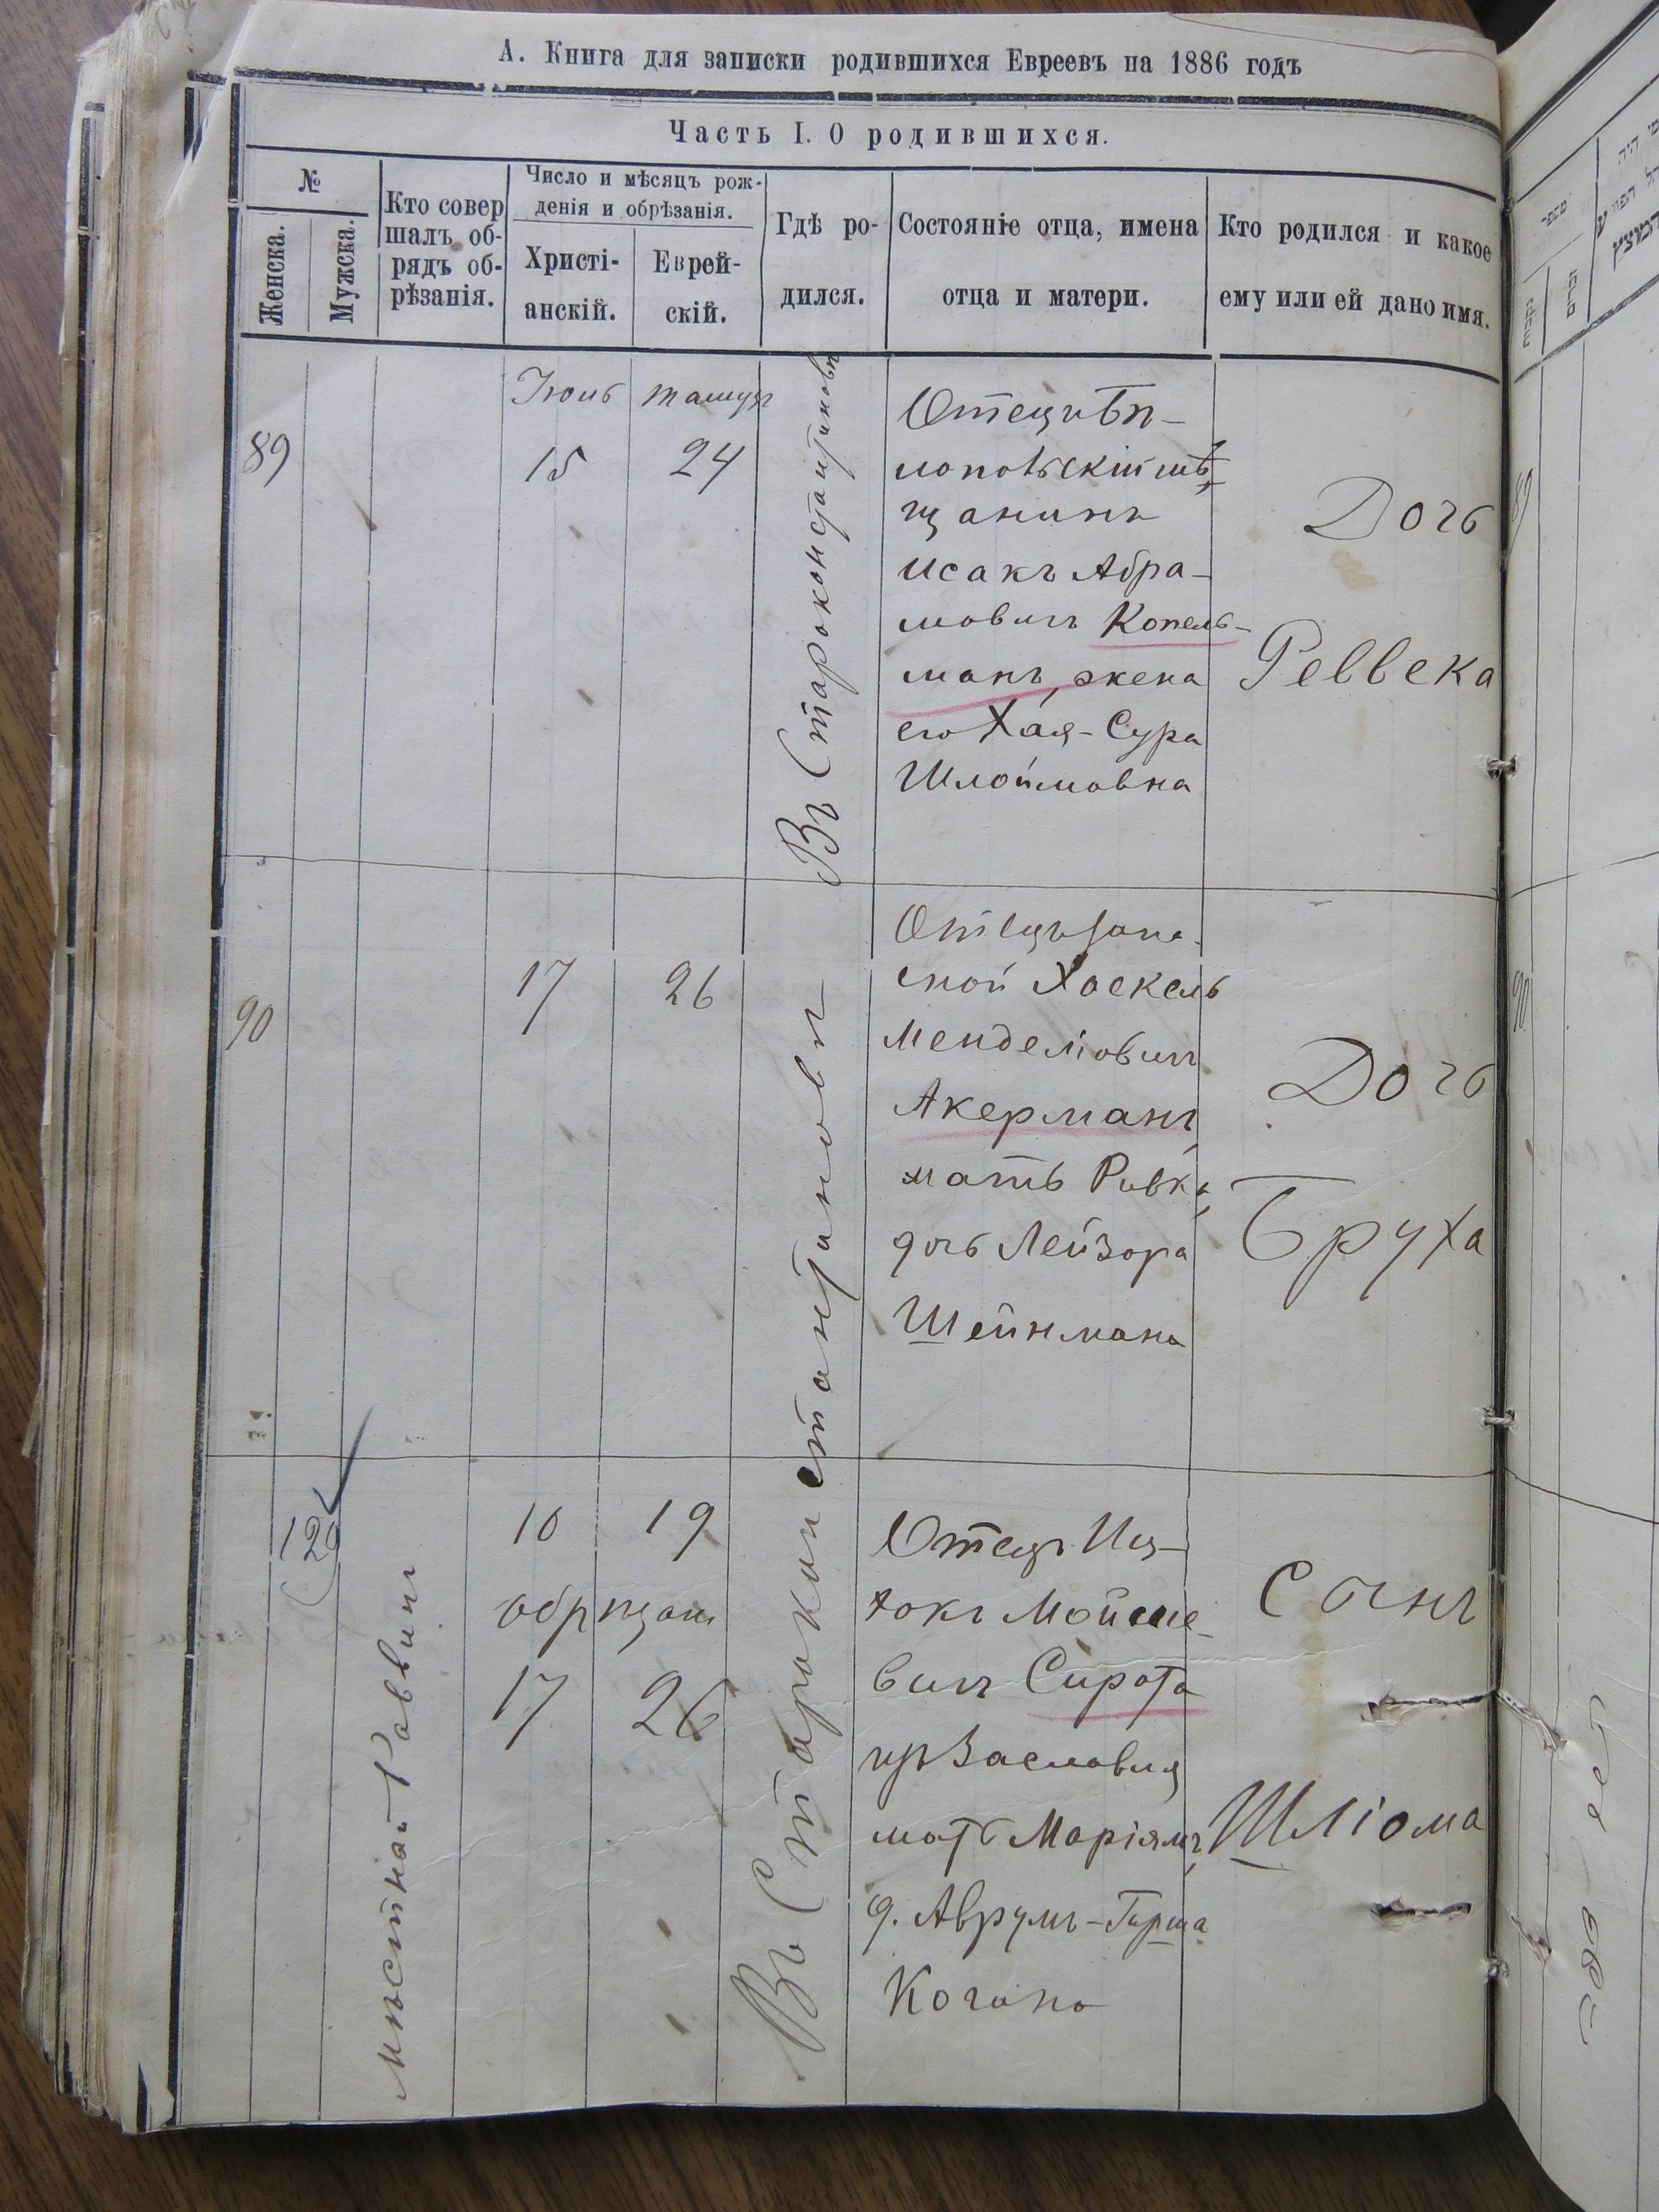 А. Книга для записки родившихся Евреевъ на 1886 годъ
Часть I. О родившихся.
№
Женска.
Мужска.
Кто совер
шалъ об-
рядъ об-
рѣзанія.
Число и мѣсяцъ рож-
денія и обрѣзанія.
Христі-
анскій.
Еврей-
скій.
Гдѣ ро-
дился.
Состояніе отца, имена
отца и матери.
Кто родился и какое
ему или ей дано имя.
89
Іюнь
15
24
Въ Староконстантиновѣ
Отецъ
мѣ-
щанинъ
Исакъ Абра-
мовичъ Копель-
манъ, жена
его Хая-Сура
Шлоймовна
Дочь
Реввека
90
17
26
Въ Староконстантиновѣ
Отецъ запа-
сной Хаскель
Менделіовичъ
Акерманъ,
мать Ривка,
дочь Лейзора
Шейнмана
Дочь
Бруха
129
Мѣстный Раввинъ
10
19
17
26
Отецъ Иц-
хокъ Мойше-
вичъ Сирота
изъ Заславля
мать Маріямъ,
д. Аврумъ-Герша
Когана
Сынъ
Шліома